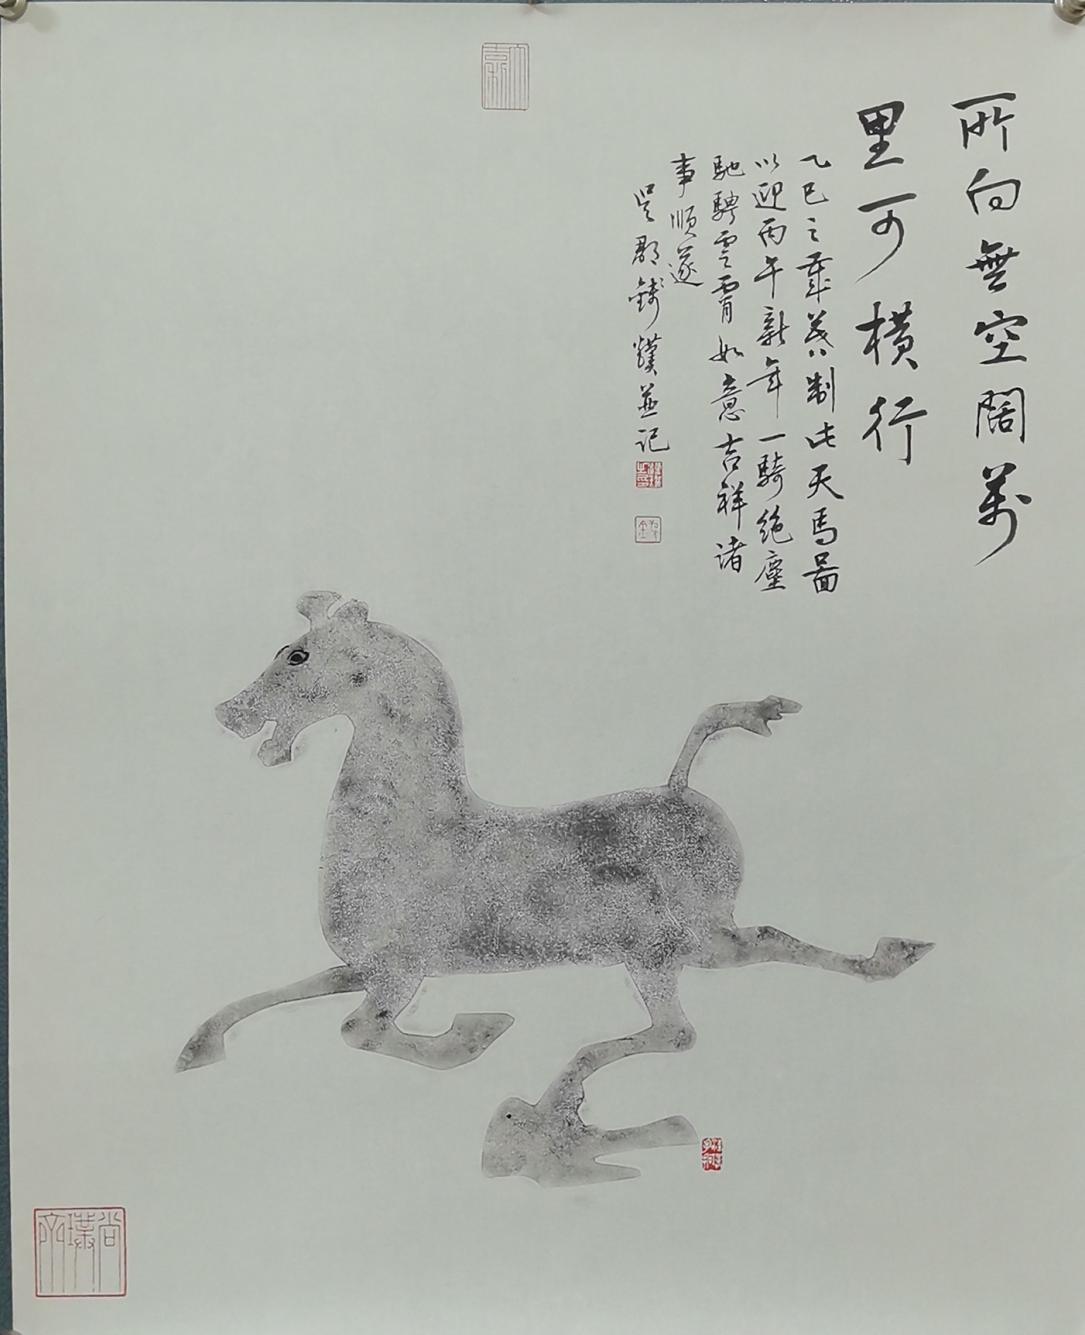 所向無空闊萬
里可橫行
乙巳之歲嵗制此天馬圖
以迎丙午新年一騎絶塵
馳騁雲霄如意吉祥諸
事順遂
吳郡錢璞並記
尚璞齋